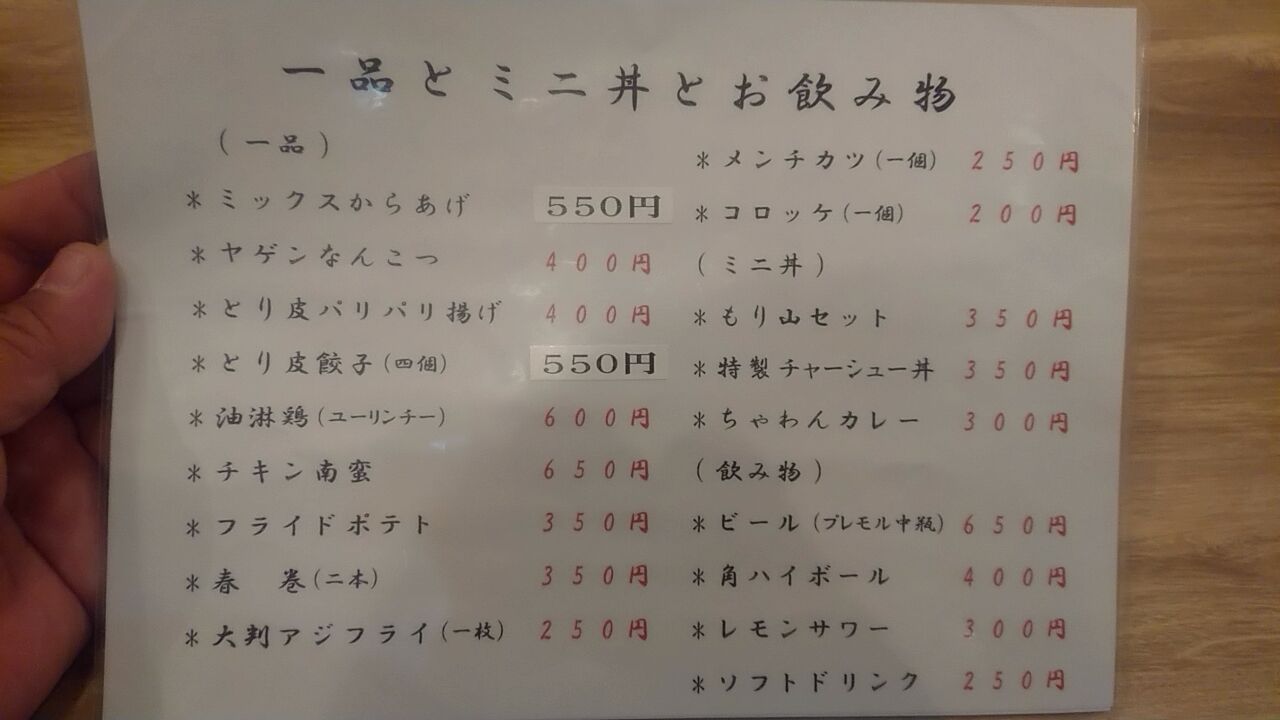 一品とミニ丼とお飲み物
(一品)
＊ミックスからあげ 550円
＊ヤゲンなんこつ 400円
＊とり皮パリパリ揚げ 400円
＊とり皮餃子(四個) 550円
＊油淋鶏(ユーリンチー) 600円
＊チキン南蛮 650円
＊フライドポテト 350円
＊春　巻(二本) 350円
＊大判アジフライ(一枚) 250円
＊メンチカツ(一個) 250円
＊コロッケ(一個) 200円
(ミニ丼)
＊もり山セット 350円
＊特製チャーシュー丼 350円
＊ちゃわんカレー 300円
(飲み物)
＊ビール(プレモル中瓶) 650円
＊角ハイボール 400円
＊レモンサワー 300円
＊ソフトドリンク 250円